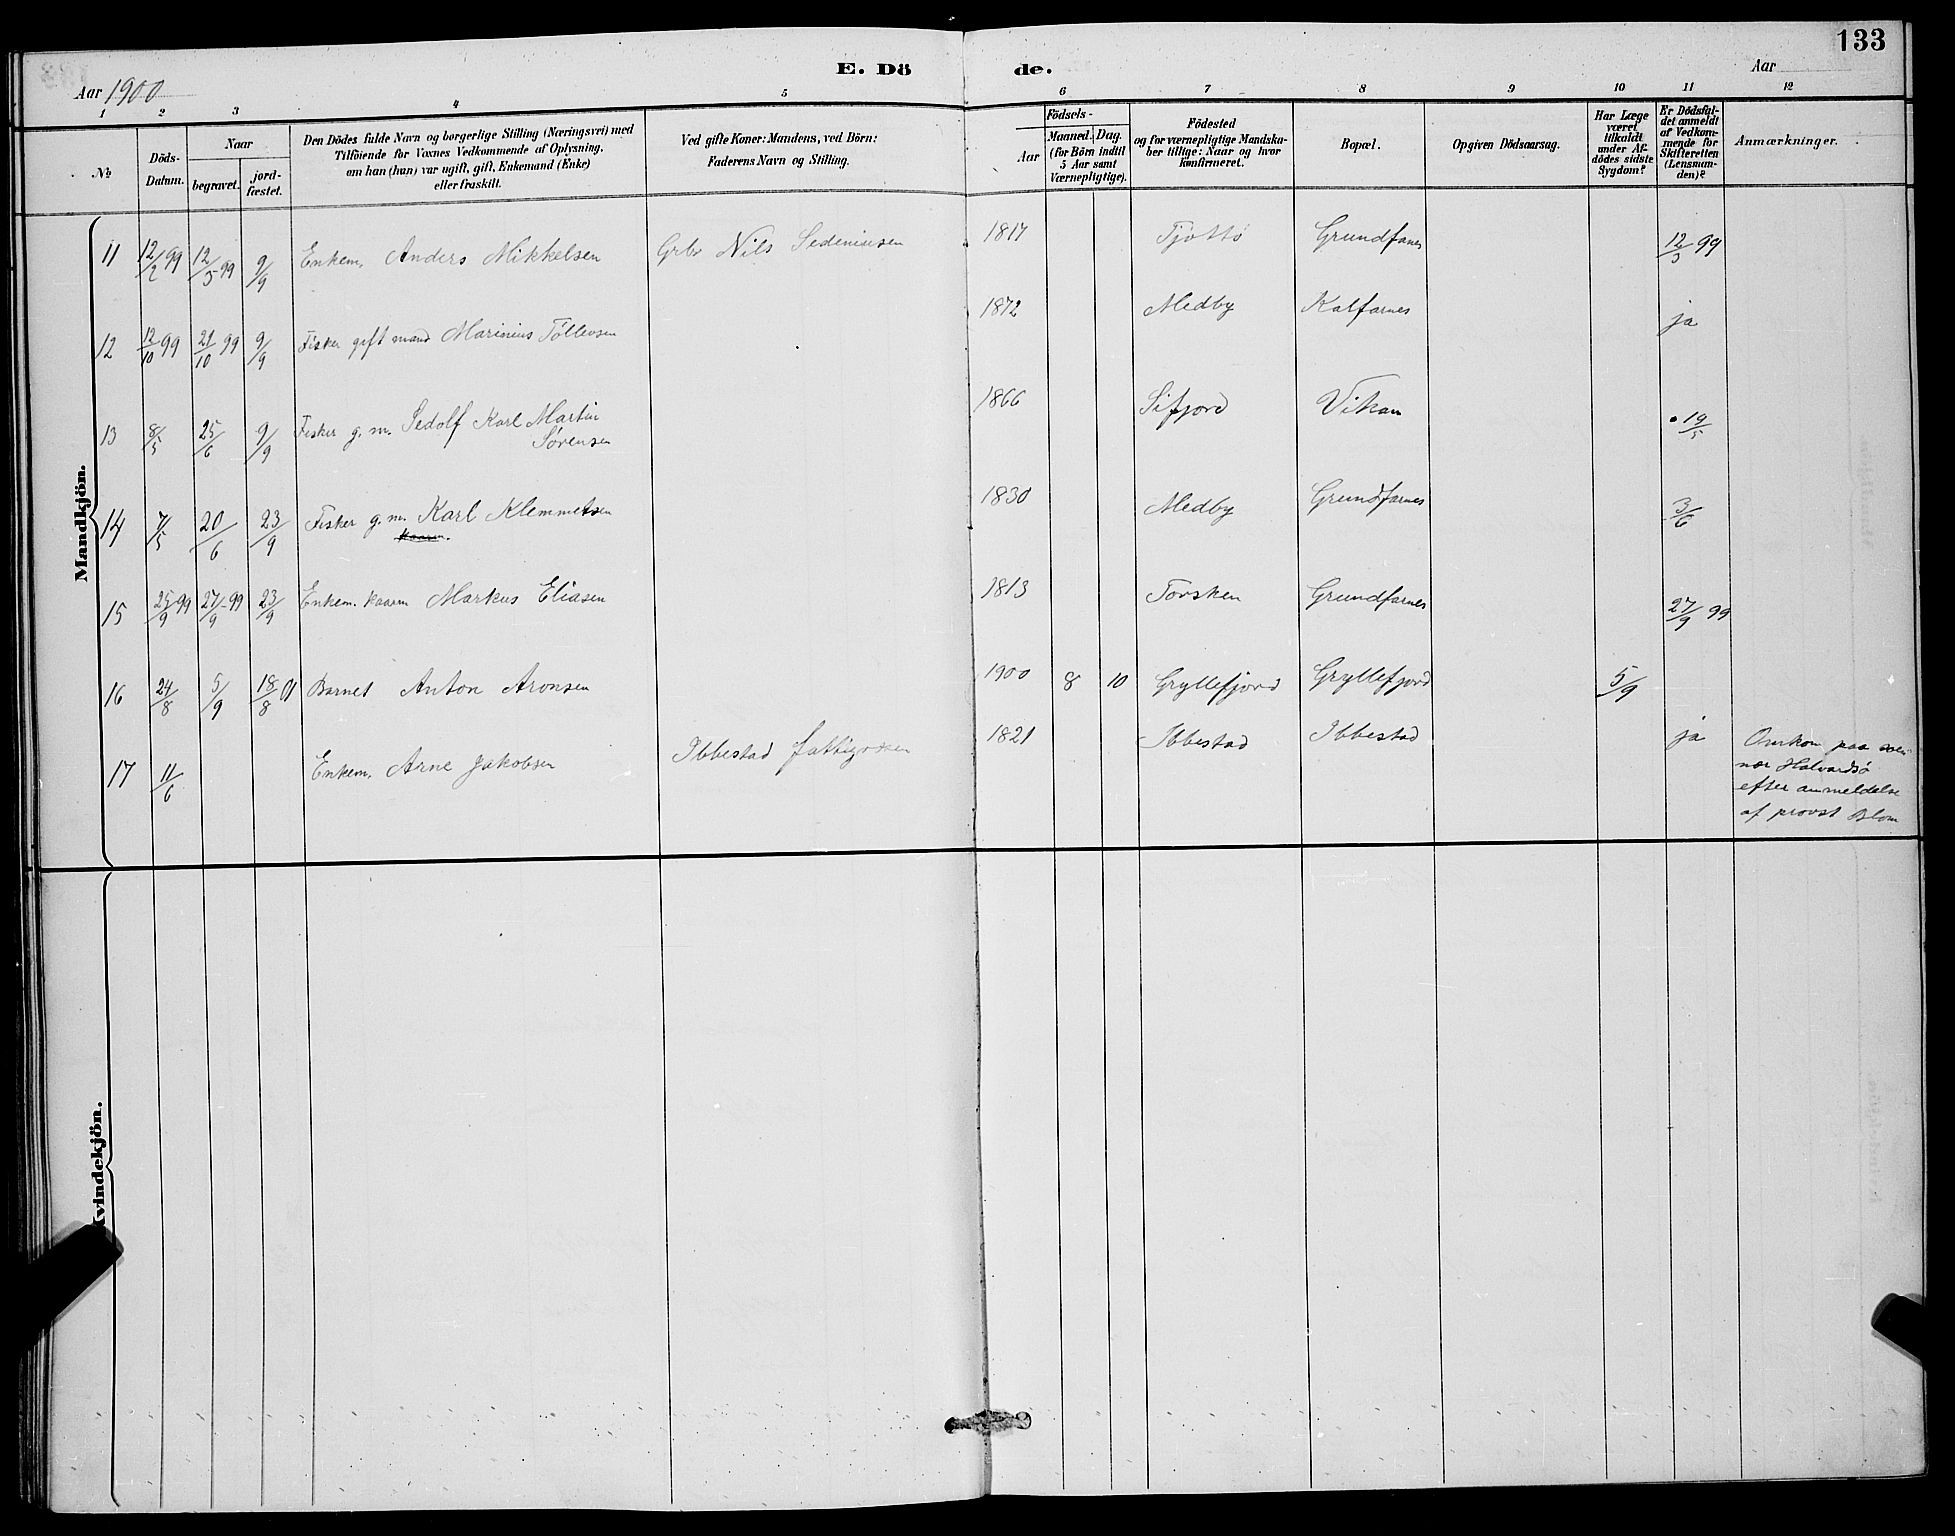 133
E. Dö de.
Aar 1900 Aar
1 2 3 4 5 6 7 8 9 10 11 12
No
Döds-Datum.
Naar
begravet.
jordfæstet.
Den Dödes fulde Navn og borgerlige Stilling (Næringsvei) med
Tilföiende for Voxnes Vedkommende af Oplysning,
om han (hun) var ugift, gift, Enkemand (Enke)
eller fraskilt.
Ved gifte Koner: Mandens, ved Börn:
Faderens Navn og Stilling.
Födsels-
Aar
Maaned. Dag.
(for Börn indtil
5 Aar samt
Værnepligtige).
Födested
og for værnepligtige Mandska-
ber tillige: Naar og hvor
konfirmeret.
Bopæl.
Opgiven Dödsaarsag.
Har Læge
været
tilkaldt
under Af-
dödes sidste
Sygdom?
Er Dödsfal-
det anmeldt
af Vedkom-
mende for
Skifteretten
(Lensman-
den)?
Anmærkninger.
Mandkjön.
11 12/2 99 12/3 99 9/9 Enkem. Anders Mikkelsen Grbr Nils Sedeniusen 1817 Tjøttø Grundfarnes 12/3 99
12 12/10 99 21/10 99 9/9 Fisker gift mand Marinius Tøllevsen 1872 Medby Kalfarnes ja
13 8/5 25/6 9/9 Fisker g. m. Sedolf Karl Martin
Sørensen 1866 Sifjord Vikan 19/5
14 7/5 20/6 23/9 Fisker g. m. Karl Klemmetsen 1830 Medby Grundfarnes 3/6
kaarm.
15 25/9 99 27/9 99 23/9 Enkem. kaarm Markus Eliasen 1813 Torsken Grundfarnes 27/9 99
16 24/8 5/9 18/8 01 Barnet Anton Aronsen 1900 8 10 Gryllefjord Gryllefjord 5/9
17 11/6 Enkem. Arne Jakobsen Ibbestad fattigvæsen 1821 Ibbestad Ibbestad ja Omkom paa
nor Halvardsø
efter anmeldelse
af provst Blom
Kvindekjön.